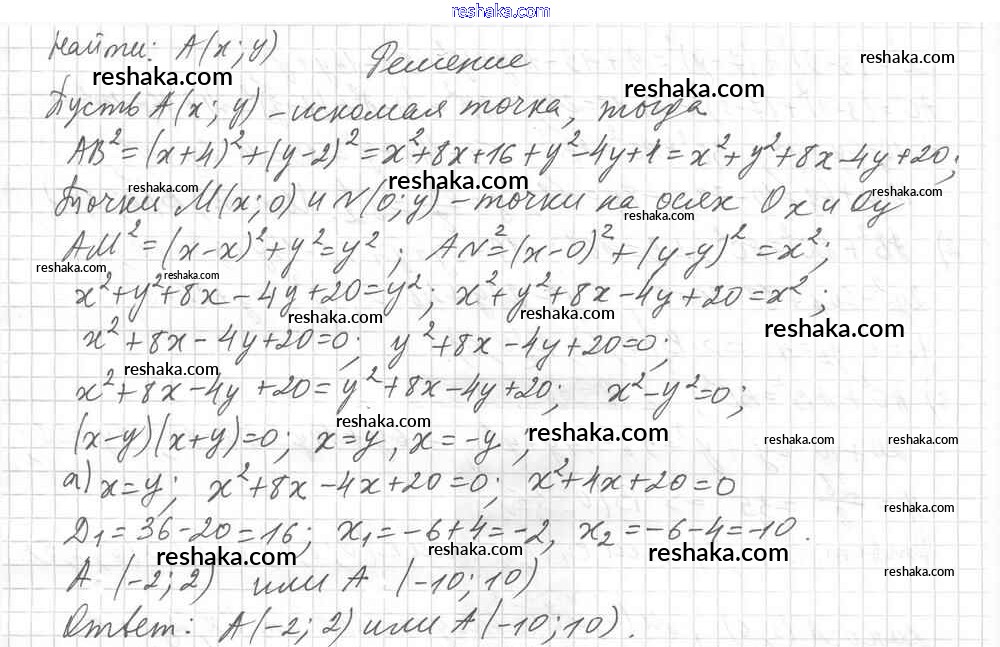 reshaka.com
Найти: A(x; y)
reshaka.com
Решение
reshaka.com
reshaka.com
Пусть A(x; y) – искомая точка, тогда
AB² = (x+4)² + (y-2)² = x²+8x+16+y²-4y+4 = x²+y²+8x-4y+20;
reshaka.com
reshaka.com
reshaka.com
Точки M(x; 0) и N(0; y) – точки на осях Ox и Oy
reshaka.com
AM² = (x-x)²+y²=y²; AN²=(x-0)²+(y-y)²=x²;
reshaka.com
reshaka.com
x²+y²+8x-4y+20=y²; x²+y²+8x-4y+20=x²;
reshaka.com
reshaka.com
reshaka.com
x²+8x-4y+20=0; y²+8x-4y+20=0;
reshaka.com
x²+8x-4y+20=y²+8x-4y+20; x²-y²=0;
reshaka.com
reshaka.com
reshaka.com
reshaka.com
(x-y)(x+y)=0; x=y, x=-y;
а) x=y; x²+8x-4x+20=0; x²+4x+20=0
reshaka.com
D₁=36-20=16; x₁=-6+4=-2, x₂=-6-4=-10.
reshaka.com
reshaka.com
reshaka.com
reshaka.com
A (-2; 2) или A (-10; 10)
Ответ: A(-2; 2) или A(-10; 10).